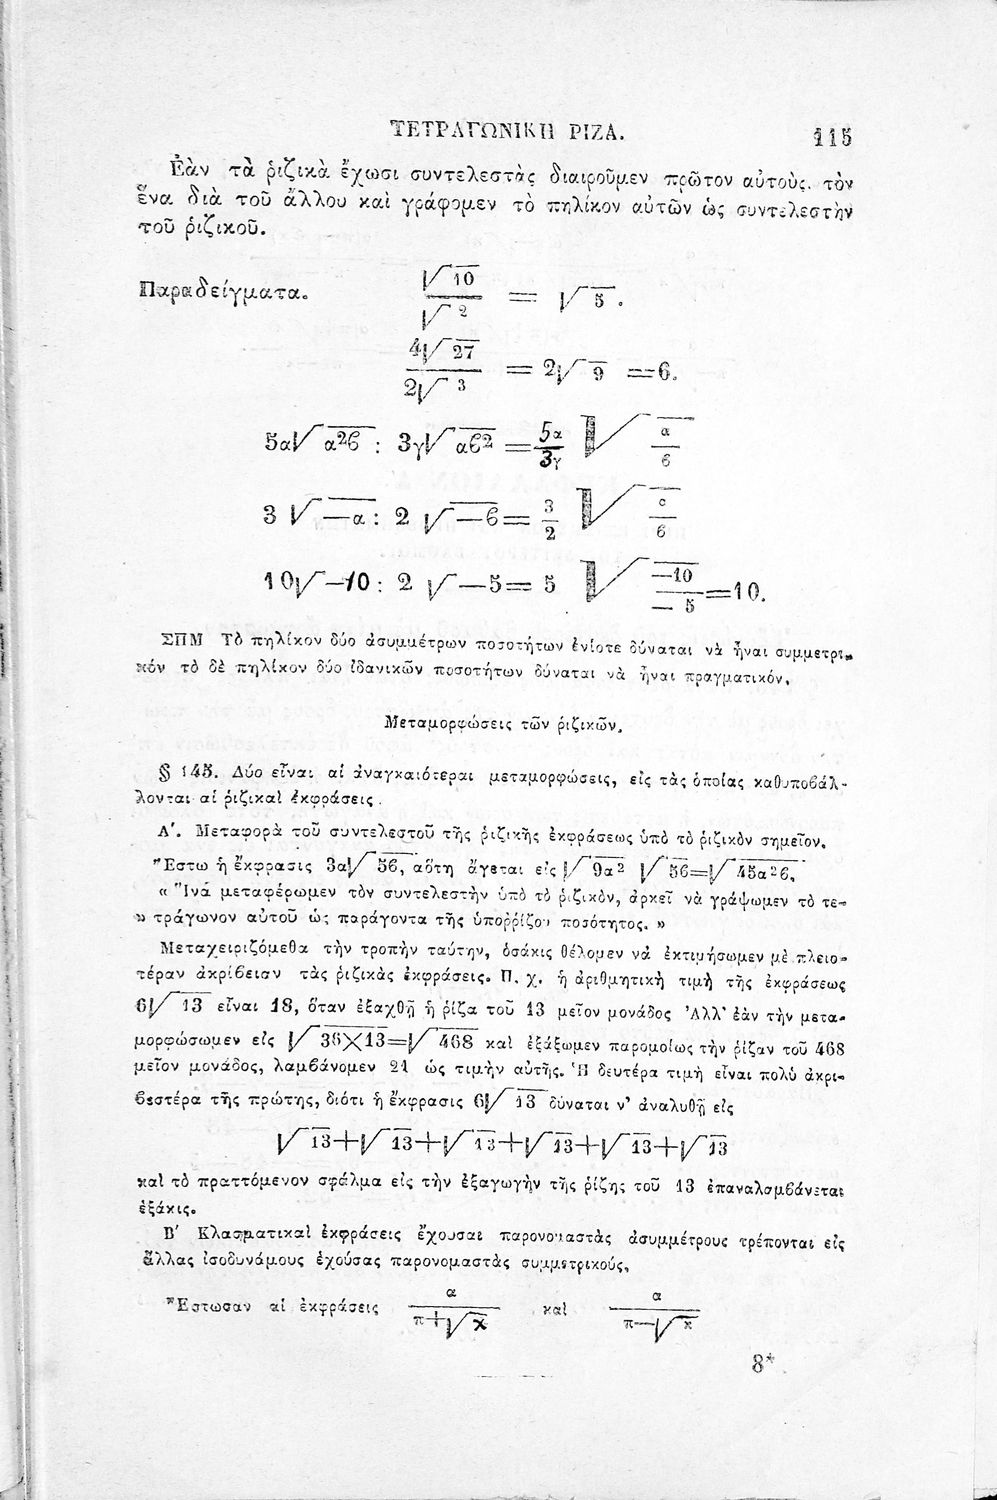 ΤΕΤΡΑΓΩΝΙΚΗ ΡΙΖΑ. 115
Ἐὰν τὰ ῥιζικὰ ἔχωσι συντελεστὰς διαιροῦμεν πρῶτον αὐτοὺς. τὸν
ἕνα διὰ τοῦ ἄλλου καὶ γράφομεν τὸ πηλίκον αὐτῶν ὡς συντελεστὴν
τοῦ ῥιζικοῦ.
Παραδείγματα. √10 / √2 = √5.
4√27 / 2√3 = 2√9 = 6.
5α√α²β : 3γ√αβ² = 5α/3γ √α/β
3 √—α : 2 √—β = 3/2 √c/β
10√—10 : 2 √—5 = 5 √—10/—5 = 10.
ΣΠΜ Τὸ πηλίκον δύο ἀσυμμέτρων ποσοτήτων ἐνίοτε δύναται νὰ ἦναι συμμετρι-
κόν τὸ δὲ πηλίκον δύο ἰδανικῶν ποσοτήτων δύναται νὰ ἦναι πραγματικόν.
Μεταμορφώσεις τῶν ῥιζικῶν.
§ 145. Δύο εἶναι αἱ ἀναγκαιότεραι μεταμορφώσεις, εἰς τὰς ὁποίας καθυποβάλ-
λονται αἱ ῥιζικαὶ ἐκφράσεις.
Α′. Μεταφορὰ τοῦ συντελεστοῦ τῆς ῥιζικῆς ἐκφράσεως ὑπὸ τὸ ῥιζικὸν σημεῖον.
Ἔστω ἡ ἔκφρασις 3α√5β, αὕτη ἄγεται εἰς √9α² √5β=√45α²β.
« Ἵνα μεταφέρωμεν τὸν συντελεστὴν ὑπὸ τὸ ῥιζικὸν, ἀρκεῖ νὰ γράψωμεν τὸ τε-
» τράγωνον αὐτοῦ ὡς παράγοντα τῆς ὑποῤῥίζου ποσότητος. »
Μεταχειριζόμεθα τὴν τροπὴν ταύτην, ὁσάκις θέλομεν νὰ ἐκτιμήσωμεν μὲ πλειο-
τέραν ἀκρίβειαν τὰς ῥιζικὰς ἐκφράσεις. Π. χ. ἡ ἀριθμητικὴ τιμὴ τῆς ἐκφράσεως
6√13 εἶναι 18, ὅταν ἐξαχθῇ ἡ ῥίζα τοῦ 13 μεῖον μονάδος Ἀλλ' ἐὰν τὴν μετα-
μορφώσωμεν εἰς √36×13=√468 καὶ ἐξάξωμεν παρομοίως τὴν ῥίζαν τοῦ 468
μεῖον μονάδος, λαμβάνομεν 21 ὡς τιμὴν αὐτῆς. Ἡ δευτέρα τιμὴ εἶναι πολὺ ἀκρι-
βεστέρα τῆς πρώτης, διότι ἡ ἔκφρασις 6√13 δύναται ν' ἀναλυθῇ εἰς
√13+√13+√13+√13+√13+√13
καὶ τὸ πραττόμενον σφάλμα εἰς τὴν ἐξαγωγὴν τῆς ῥίζης τοῦ 13 ἐπαναλαμβάνεται
ἑξάκις.
Β′ Κλασματικαὶ ἐκφράσεις ἔχουσαι παρονομαστὰς ἀσυμμέτρους τρέπονται εἰς
ἄλλας ἰσοδυνάμους ἐχούσας παρονομαστὰς συμμετρικούς.
Ἔστωσαν αἱ ἐκφράσεις α / π+√χ καὶ α / π—√κ
8*